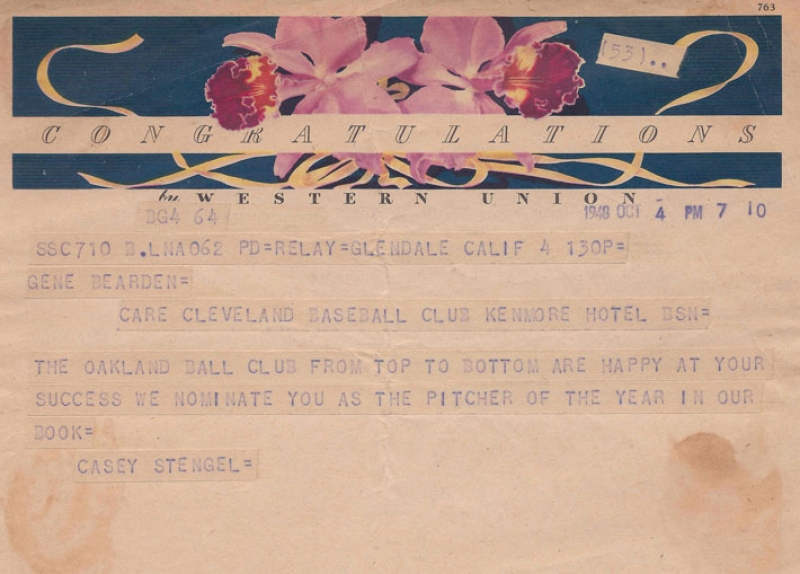 763
(53)..
CONGRATULATIONS
by WESTERN UNION
BG4 64
1948 OCT 4 PM 7 10
SSC710 B.LNA062 PD=RELAY=GLENDALE CALIF 4 130P=
GENE BEARDEN=
CARE CLEVELAND BASEBALL CLUB KENMORE HOTEL BSN=
THE OAKLAND BALL CLUB FROM TOP TO BOTTOM ARE HAPPY AT YOUR
SUCCESS WE NOMINATE YOU AS THE PITCHER OF THE YEAR IN OUR
BOOK=
CASEY STENGEL=